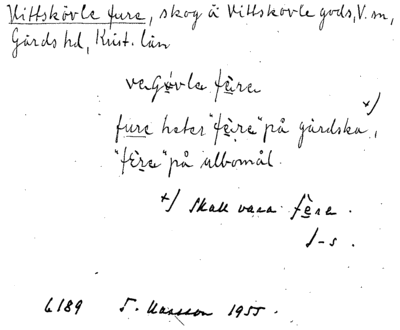 Vittskövle fure, skog å Vittskövle gods, V. sn,
Gärds hd, Krist. län
vaGövla fèra
fure heter "fèra" på gärdska, x)
"fèra" på albomål.
x) skall vara fèra.
J-s.
6189 1955.